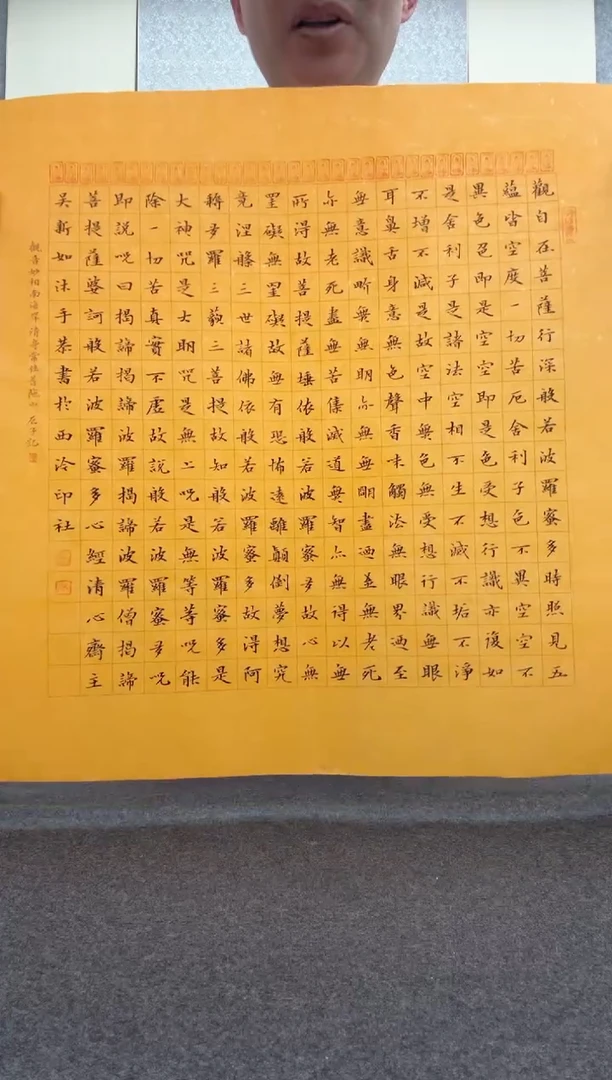 觀自在菩薩行深般若波羅蜜多時照見五
蘊皆空度一切苦厄舍利子色不異空空不
異色色即是空空即是色受想行識亦復如
是舍利子是諸法空相不生不滅不垢不淨
不增不減是故空中無色無受想行識無眼
耳鼻舌身意無色聲香味觸法無眼界迺至
無意識界無無明亦無無明盡迺至無老死
亦無老死盡無苦集滅道無智亦無得以無
所得故菩提薩埵依般若波羅蜜多故心無
罣礙無罣礙故無有恐怖遠離顛倒夢想究
竟涅槃三世諸佛依般若波羅蜜多故得阿
耨多羅三藐三菩提故知般若波羅蜜多是
大神咒是大明咒是無上呪是無等等呪能
除一切苦真實不虛故說般若波羅蜜多呪
即說呪曰揭諦揭諦波羅揭諦波羅僧揭諦
菩提薩婆訶般若波羅蜜多心經清心齋主
吳新如沐手恭書於西泠印社
觀音妙相南海岸